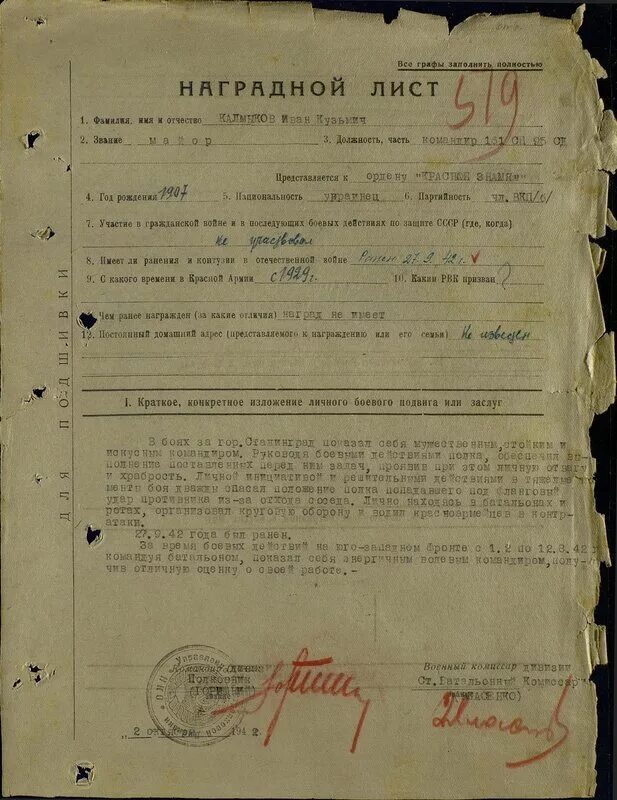 Все графы заполнять полностью
НАГРАДНОЙ ЛИСТ
519
1. Фамилия, имя и отчество КАЛМЫКОВ Иван Кузьмич
2. Звание майор 3. Должность, часть командир 161 СП 95 СД
Представляется к ордену "КРАСНОЕ ЗНАМЯ"
4. Год рождения 1907 5. Национальность украинец 6. Партийность чл.ВКП/б/
7. Участие в гражданской войне и в последующих боевых действиях по защите СССР (где, когда)
Не участвовал
8. Имеет ли ранения и контузии в отечественной войне Ранен 27.9.42 г.
9. С какого времени в Красной Армии с 1929 г. 10. Каким РВК призван ?
Чем ранее награжден (за какие отличия) наград не имеет
12. Постоянный домашний адрес (представляемого к награждению или его семьи) Не известен
ДЛЯ ПОДШИВКИ
I. Краткое, конкретное изложение личного боевого подвига или заслуг
В боях за гор.Сталинград показал себя мужественным,стойким и
искусным командиром. Руководя боевыми действиями полка, обеспечил вы-
полнение поставленных перед ним задач, проявив при этом личную отвагу
и храбрость. Личной инициативой и решительными действиями в тяжелые
менты боя дважды спасал положение полка попадавшего под фланговый
удар противника из-за отхода соседа. Лично находясь в батальонах и
ротах, организовал круговую оборону и водил красноармейцев в контр-
атаки.
27.9.42 года был ранен.
За время боевых действий на юго-западном фронте с 1.2 по 12.8.42 г
командуя батальоном, показал себя энергичным волевым командиром,полу-
чив отличную оценку о своей работе.-
Командир дивизии
Полковник
(ГОРИШНЫЙ)
Военный комиссар дивизии
Ст.Батальонный Комиссар
(ВЛАСЕНКО)
2 октября 1942